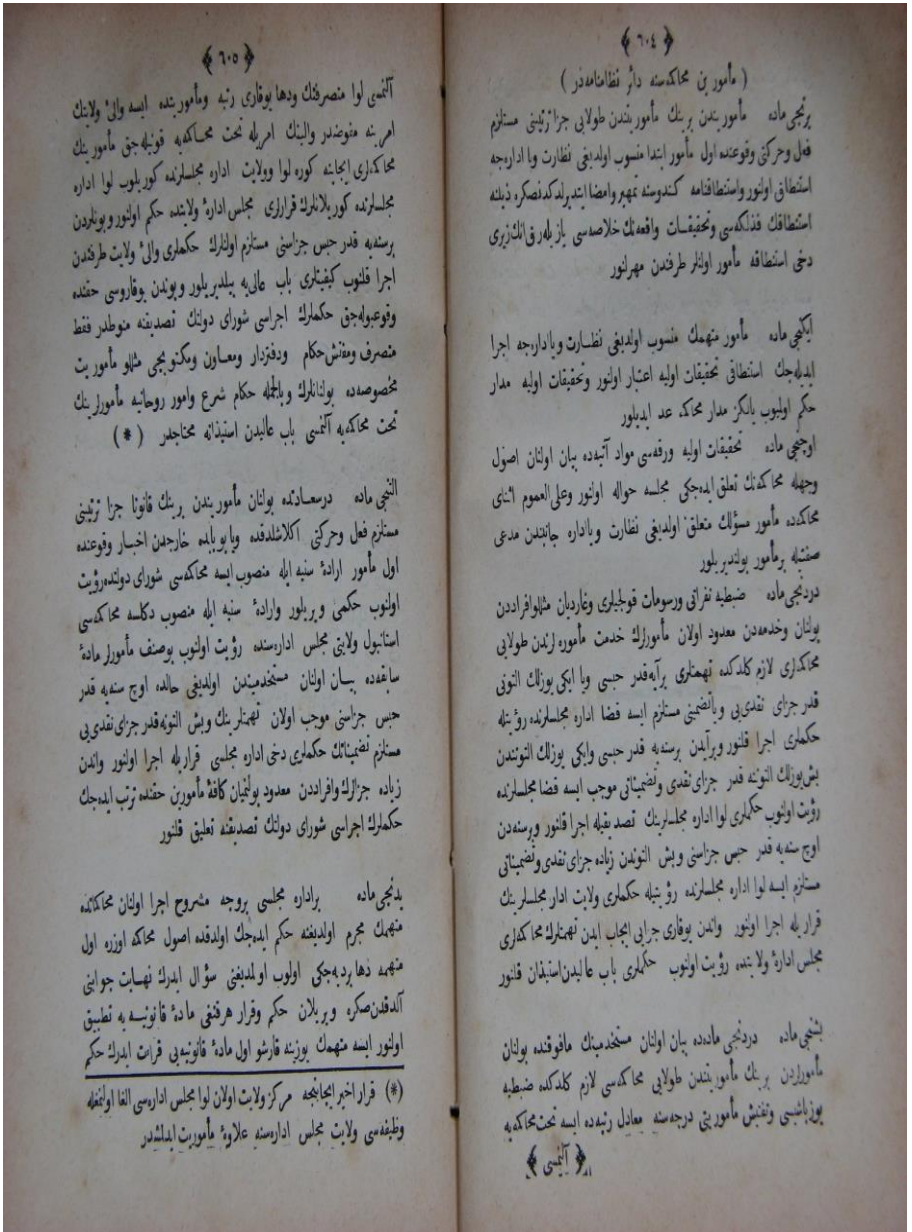 ﴿ ٦٠٤ ﴾
( مأمورين محاكمه سنه دائر نظامنامه در )
برنجى ماده مأموريندن برينك مأموريتندن طولايى جزا ترتيبنى مستلزم
فعل وحركتى وقوعنده اول مأمور ابتدا منسوب اولديغى نظارت ويا اداره جه
استنطاق اولنور واستنطاقنامه كندوسنه تمهير وامضا ايتديرلدكدنصكره ذيلنه
استنطاقك فذلكه سى وتحقيقات واقعه نك خلاصه سى يازيله رق انك زيرى
دخى استنطاقه مأمور اولنلر طرفندن مهرلنور
ايكنجى ماده مأمور متهمك منسوب اولديغى نظارت ويا اداره جه اجرا
ايديله جك استنطاقى تحقيقات اوليه اعتبار اولنور وتحقيقات اوليه مدار
حكم اوليوب يالكز مدار محاكمه عد ايديلور
اوچنجى ماده تحقيقات اوليه ورقه سى مواد آتيه ده بيان اولنان اصول
وجهله محاكمه نك تعلق ايده جكى مجلسه حواله اولنور وعلى العموم اثناى
محاكمه ده مأمور مسؤلك متعلق اولديغى نظارت ويا اداره جانبندن مدعى
صفتيله بر مأمور بولنديريلور
دردنجى ماده ضبطيه نفراتى ورسومات قولجيلرى وغارديان مثللو افراددن
بولنان وخدمه دن معدود اولان مأمورلرك خدمت مأموره لرندن طولايى
محاكمه لرى لازم كلدكده تهمتلرى بر آيه قدر حبسى ويا ايكى يوزلك التونى
قدر جزاى نقدى يى ويا تضمينى مستلزم ايسه قضا اداره مجلسلرنده رؤيتله
حكملرى اجرا قلنور وبر آيدن بر سنه يه قدر حبسى وايكى يوزلك التوندن
بش يوزلك التونه قدر جزاى نقدى وتضميناتى موجب ايسه قضا مجلسلرنده
رؤيت اولنوب حكملرى لوا اداره مجلسلرينك تصديقيله اجرا قلنور وبر سنه دن
اوچ سنه يه قدر حبس جزاسنى وبش التوندن زياده جزاى نقدى وتضميناتى
مستلزم ايسه لوا اداره مجلسلرنده رؤيتيله حكملرى ولايت اداره مجلسلرينك
قراريله اجرا اولنور واندن يوقارى جزايى ايجاب ايدن تهمتلرك محاكمه لرى
مجلس ادارۀ ولايتده رؤيت اولنوب حكملرى باب عاليدن استيذان قلنور
بشنجى ماده دردنجى ماده ده بيان اولنان مستخدمينك مافوقنده بولنان
مأمورلردن برينك مأموريتندن طولايى محاكمه سى لازم كلدكده ضبطيه
يوزباشيسى وتفتيش مأموريتى درجه سنه معادل رتبه ده ايسه تحت محاكمه يه
﴿ آلنمسى ﴾
﴿ ٦٠٥ ﴾
آلنمسى لوا متصرفنك ودها يوقارى رتبه ومأموريتده ايسه والئ ولايتك
امرينه متوضدر والينك امريله تحت محاكمه يه قونيله جق مأمورينك
محاكمه لرى ايجابنه كوره لوا وولايت اداره مجلسلرنده كوريلوب لوا اداره
مجلسلرنده كوريلانلرك قرارلرى مجلس ادارۀ ولايتده حكم اولنور وبونلردن
بر سنه يه قدر حبس جزاسنى مستلزم اولنلرك حكملرى والئ ولايت طرفندن
اجرا قلنوب كيفيتلرى باب عالى يه بيلديريلور وبوندن يوقاروسى حقنده
وقوعبوله جق حكملرك اجراسى شوراى دولتك تصديقنه منوطدر فقط
متصرف ومفتش حكام ودفتردار ومعاون ومكتوبجى مثللو مأموريت
مخصوصه ده بولنانلرك وبالجمله حكام شرع وامور روحانيه مأمورلرينك
تحت محاكمه يه آلنمسى باب عاليدن استيذانه محتاجدر ( * )
التنجى ماده درسعادتده بولنان مأموريندن برينك قانونا جزا ترتيبنى
مستلزم فعل وحركتى اكلاشلدقده ويا بو بابده خارجدن اخبار وقوعنده
اول مأمور ارادۀ سنيه ايله منصوب ايسه محاكمه سى شوراى دولتده رؤيت
اولنوب حكمى ويريلور وارادۀ سنيه ايله منصوب دكلسه محاكمه سى
استانبول ولايتى مجلس اداره سنده رؤيت اولنوب بو صنف مأمورلر مادۀ
سابقه ده بيان اولنان مستخدميندن اولديغى حالده اوچ سنه يه قدر
حبس جزاسنى موجب اولان تهمتلرينك وبش التونه قدر جزاى نقدى يى
مستلزم تضميناتك حكملرى دخى اداره مجلسى قراريله اجرا اولنور واندن
زياده جزالرك وافراددن معدود بولنميان كافۀ مأمورين حقنده ترتب ايده جك
حكملرك اجراسى شوراى دولتك تصديقنه تعليق قلنور
يدنجى ماده بر اداره مجلسى بر وجه مشروح اجرا اولنان محاكماتده
متهمك مجرم اولديغنه حكم ايده جك اولدقده اصول محاكمه اوزره اول
متهمه دها بر ديه جكى اولوب اولمديغنى سؤال ايدرك نهايت جوابنى
آلدقدن صكره ويريلان حكم وقرار هرقنغى مادۀ قانونيه يه تطبيق
اولنور ايسه متهمك يوزينه قارشو اول مادۀ قانونيه يى قرائت ايدرك حكم
(*) قرار اخير ايجابنجه مركز ولايت اولان لوا مجلس اداره سى الغا اولنمغله
وظيفه سى ولايت مجلس اداره سنه علاوۀ مأموريت ايدلشدر